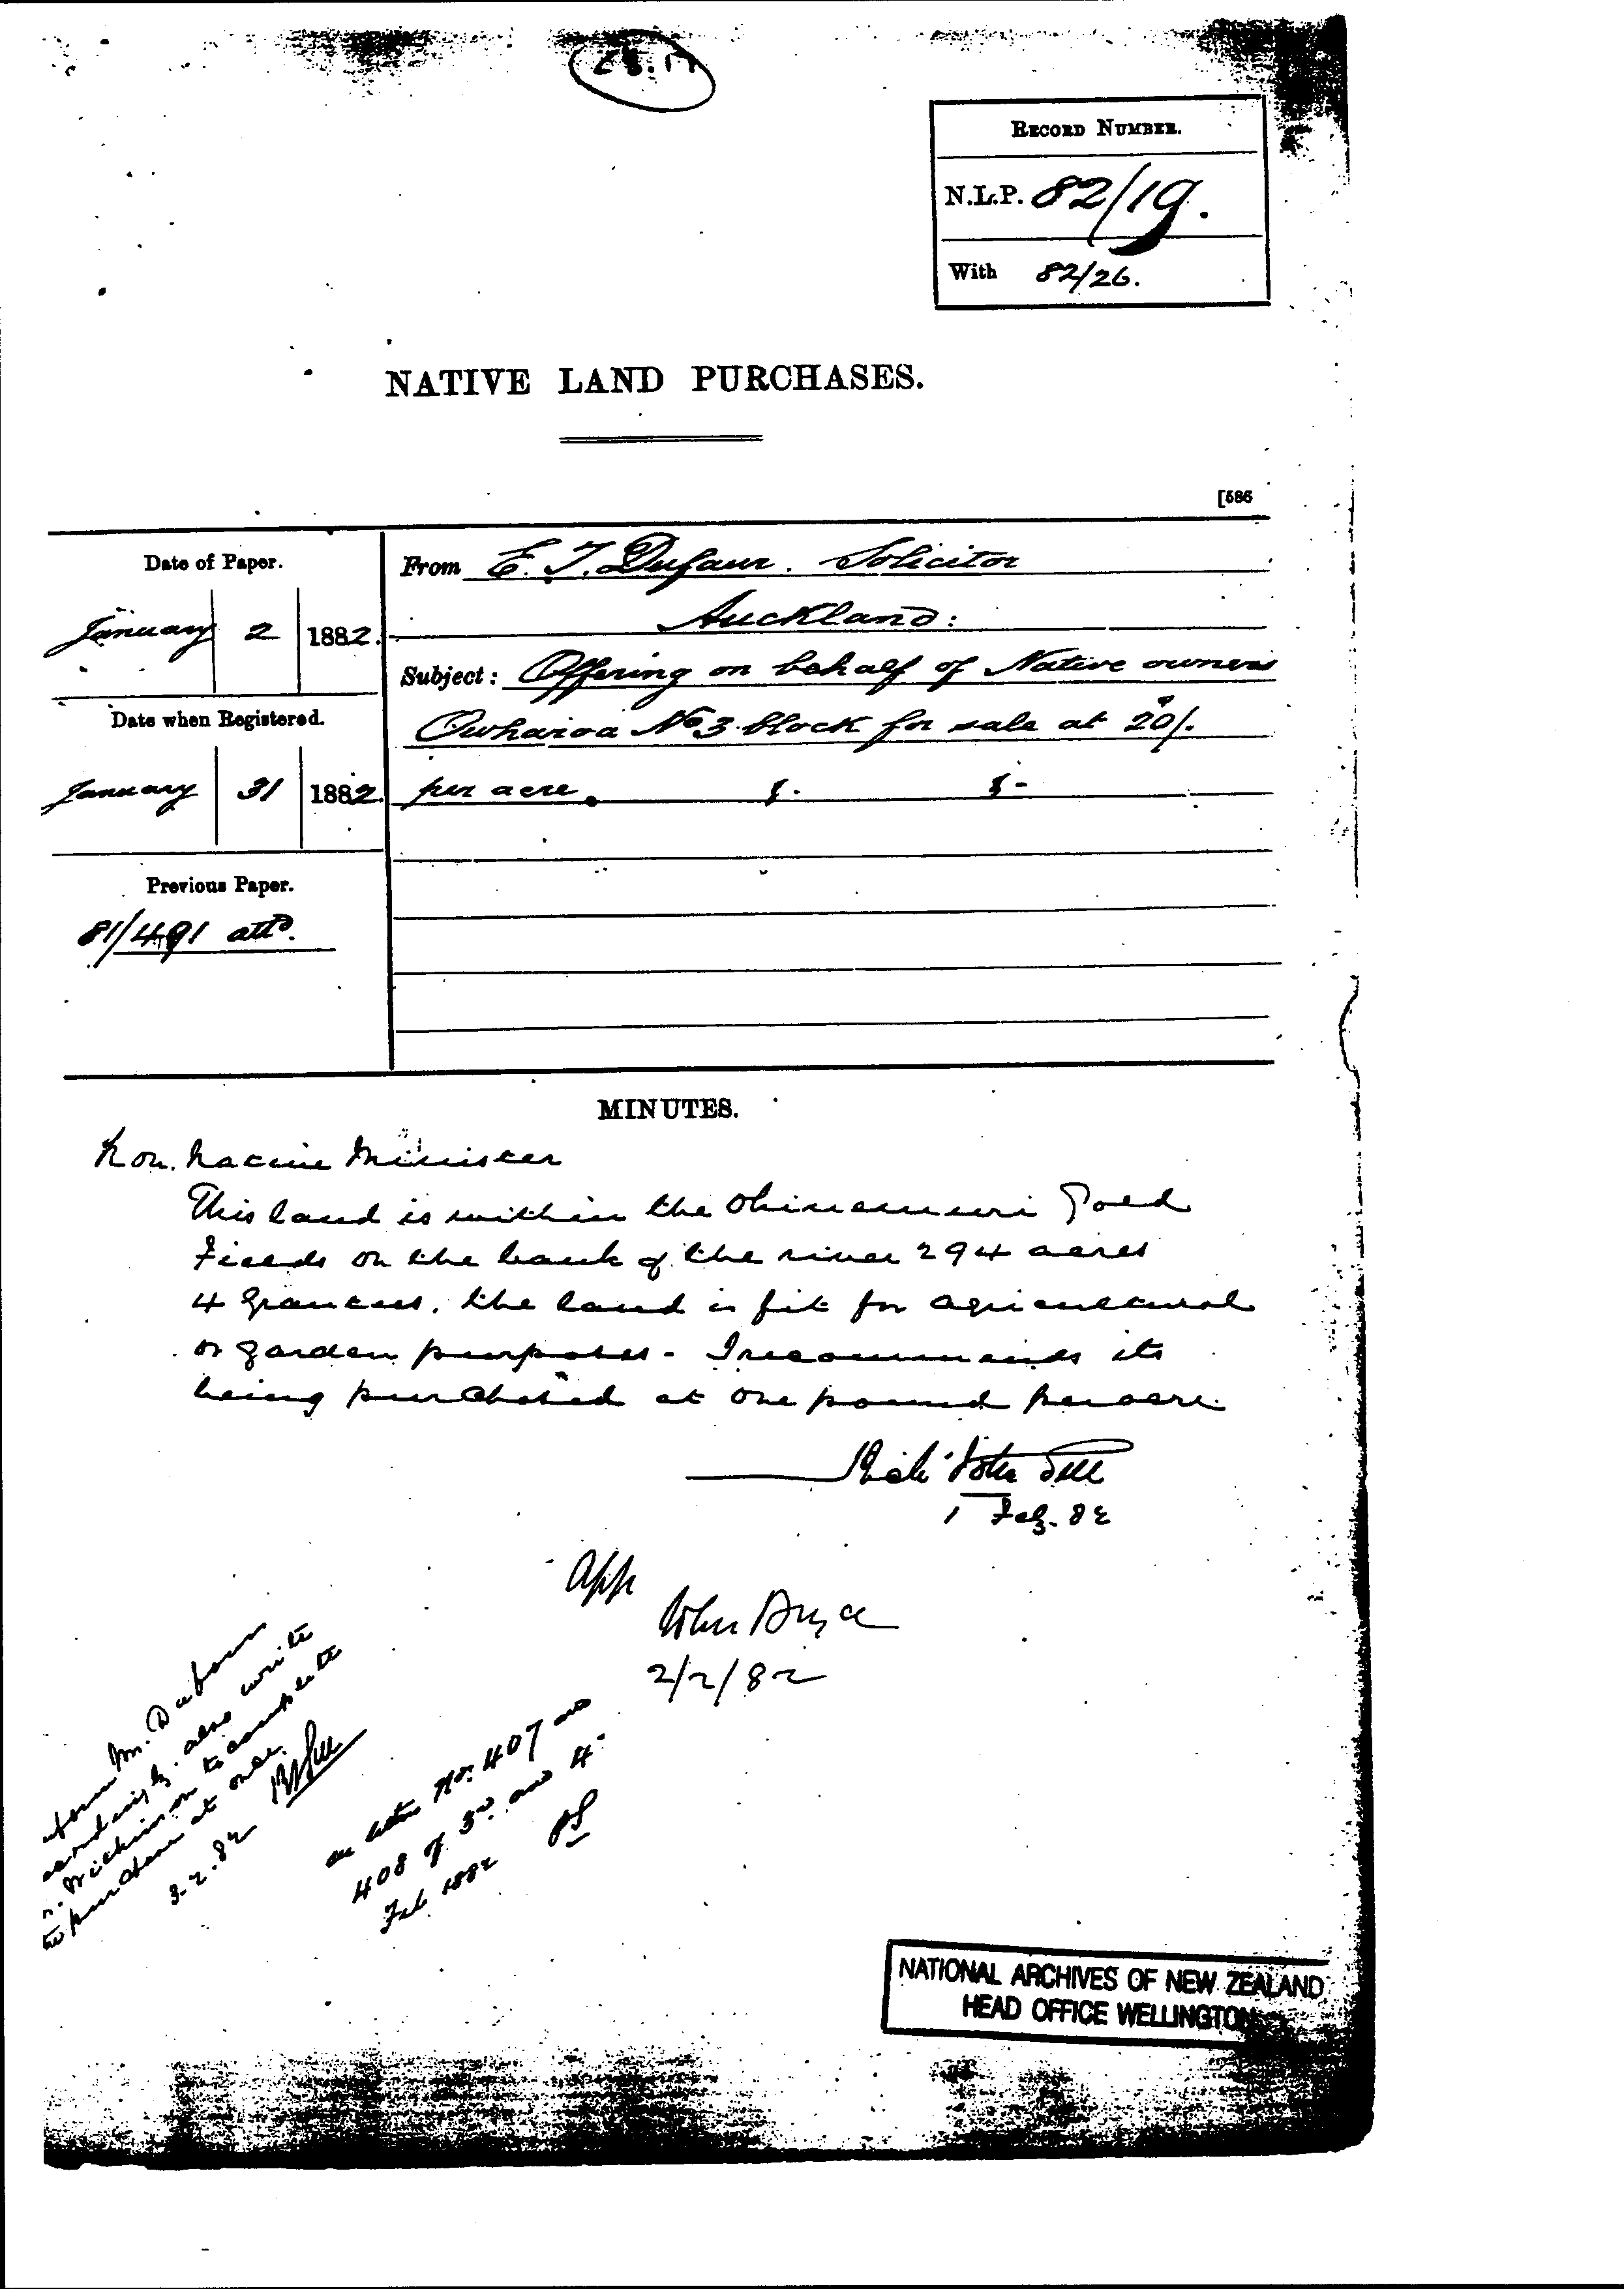 RECORD NUMBER.
N.L.P. 82/19.
With 82/26.
NATIVE LAND PURCHASES.
[586
Date of Paper.
January 2 1882.
Date when Registered.
January 31 1882.
Previous Paper.
81/491 attd.
From E. T. Dufaur. Solicitor
Auckland:
Subject: Offering on behalf of Native owners
Owharoa No 3 block for sale at 20/.
per acre.
MINUTES.
Hon. Native Minister
This land is within the Ohinemuri Gold
Fields on the bank of the river 294 acres
4 Grantees. The land is fit for agricultural
or garden purposes - I recommend its
being purchased at one pound per acre.
Gill
1 Feb. 82
App
John Bryce
2/2/82
Mr. Dufaur
also write
to complete
purchase at once.
3.2.82
No. 407 and
408 of 3rd and 4
Feb 1882
NATIONAL ARCHIVES OF NEW ZEALAND
HEAD OFFICE WELLINGTON